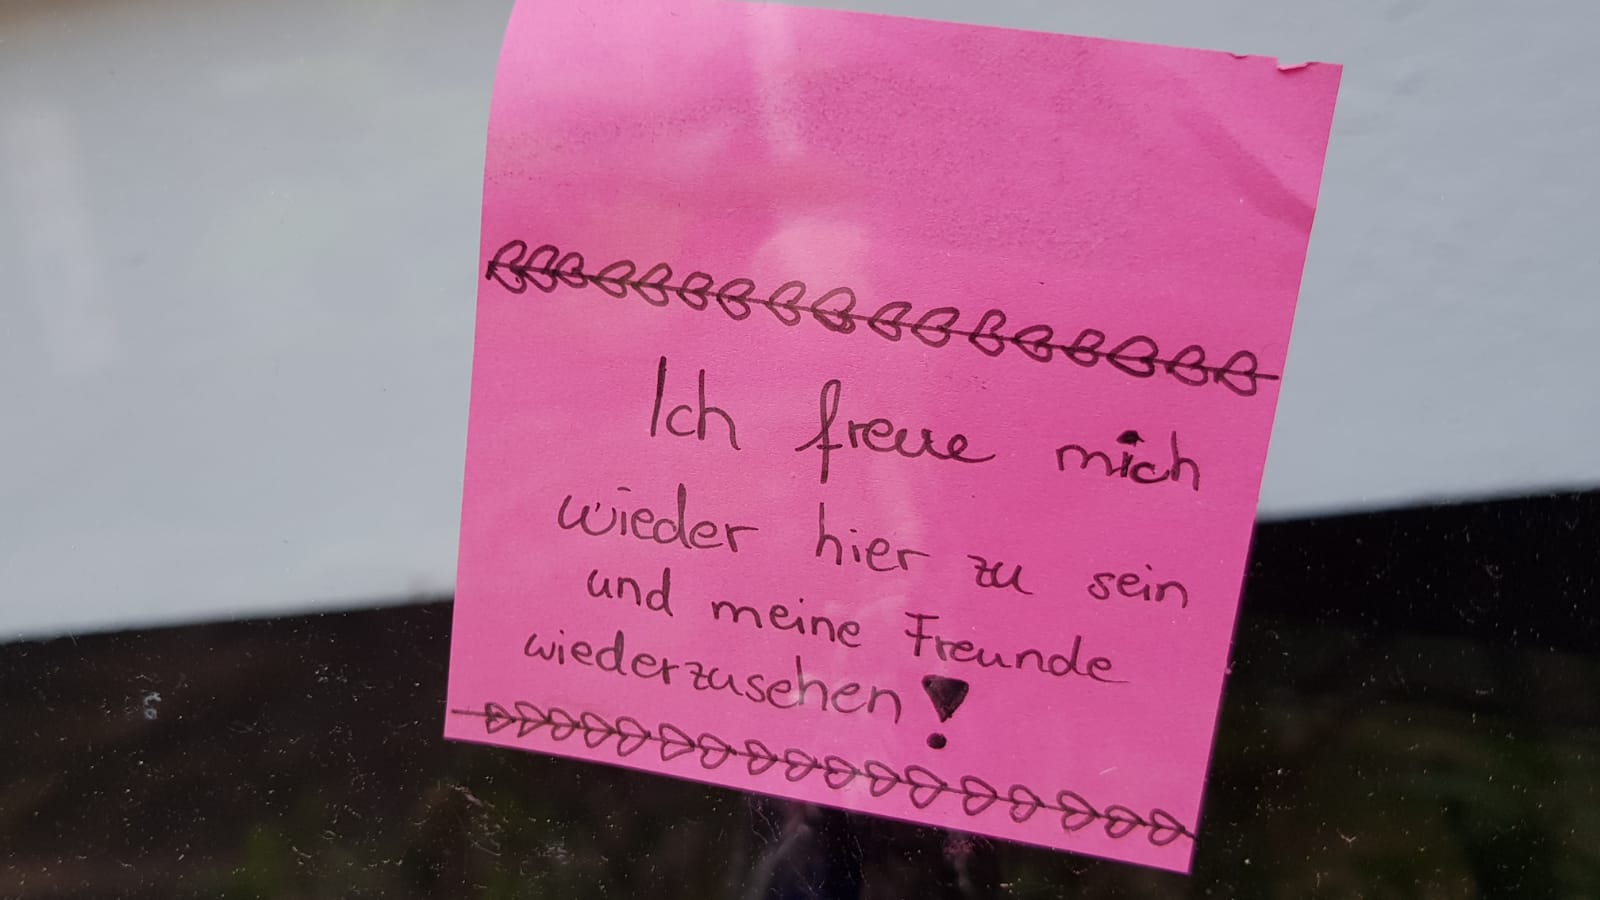 Ich freue mich
wieder hier zu sein
und meine Freunde
wiederzusehen!